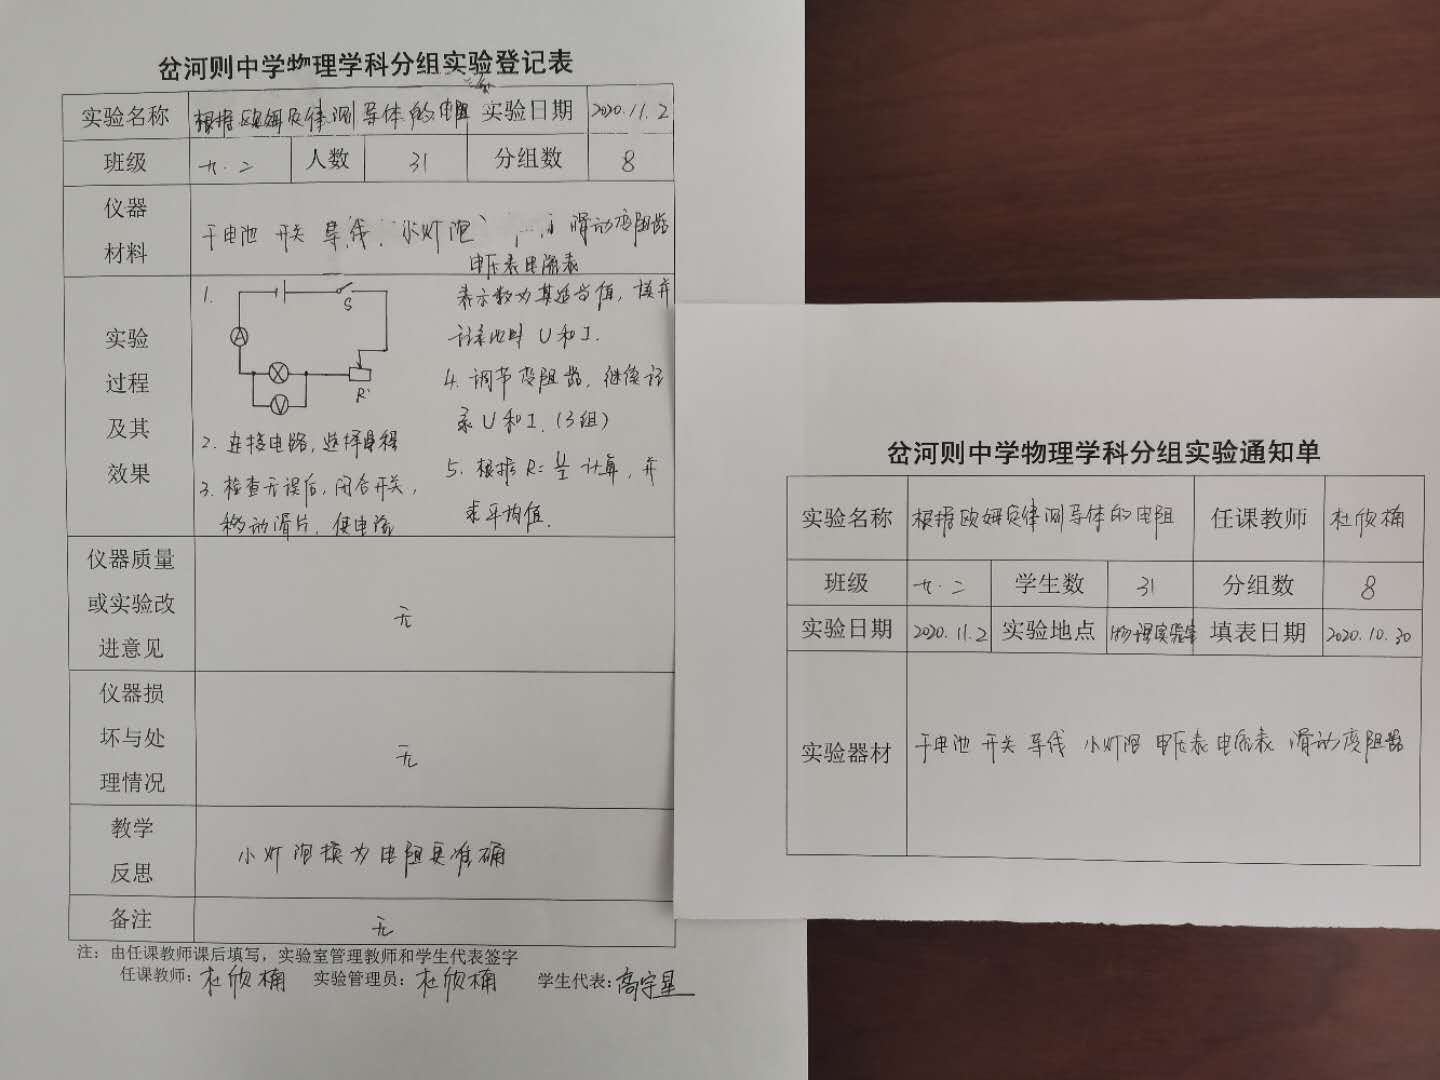 岔河则中学物理学科分组实验登记表
实验名称 根据欧姆定律测导体的电阻 实验日期 2020.11.2
班级 九.二 人数 31 分组数 8
仪器
材料
干电池 开关 导线、小灯泡 滑动变阻器
电压表电流表
实验
过程
及其
效果
1.
S
A
V
R'
2. 连接电路,选择量程
3. 检查无误后,闭合开关,
移动滑片,使电流
表示数为某适当值,读并
记录此时 U和I.
4. 调节变阻器,继续记
录U和I.(3组)
5. 根据R=U/I 计算,并
求平均值.
仪器质量
或实验改
进意见
无
仪器损
坏与处
理情况
无
教学
反思
小灯泡换为电阻更准确
备注 无
注:由任课教师课后填写,实验室管理教师和学生代表签字
任课教师:杜欣楠 实验管理员:杜欣楠 学生代表:高宇星
岔河则中学物理学科分组实验通知单
实验名称 根据欧姆定律测导体的电阻 任课教师 杜欣楠
班级 九.二 学生数 31 分组数 8
实验日期 2020.11.2 实验地点 物理实验室 填表日期 2020.10.30
实验器材 干电池 开关 导线 小灯泡 电压表 电流表 滑动变阻器